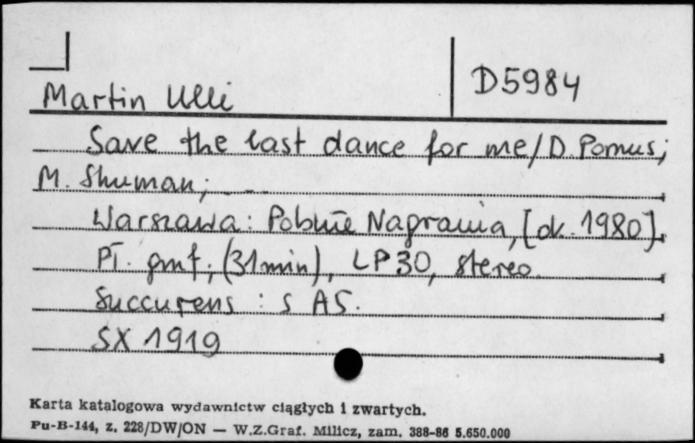 Martin Ulli
D5984
Save the last dance for me/D. Pomus;
M. Shuman; ...
Warszawa: Polskie Nagrania, [ok. 1980].
Pł. gmf.; (31min), LP30, stereo.
Succurens : s AS.
SX 1919
Karta katalogowa wydawnictw ciągłych i zwartych.
Pu-B-144, z. 228/DW/ON — W.Z.Graf. Milicz, zam. 388-86 5.650.000